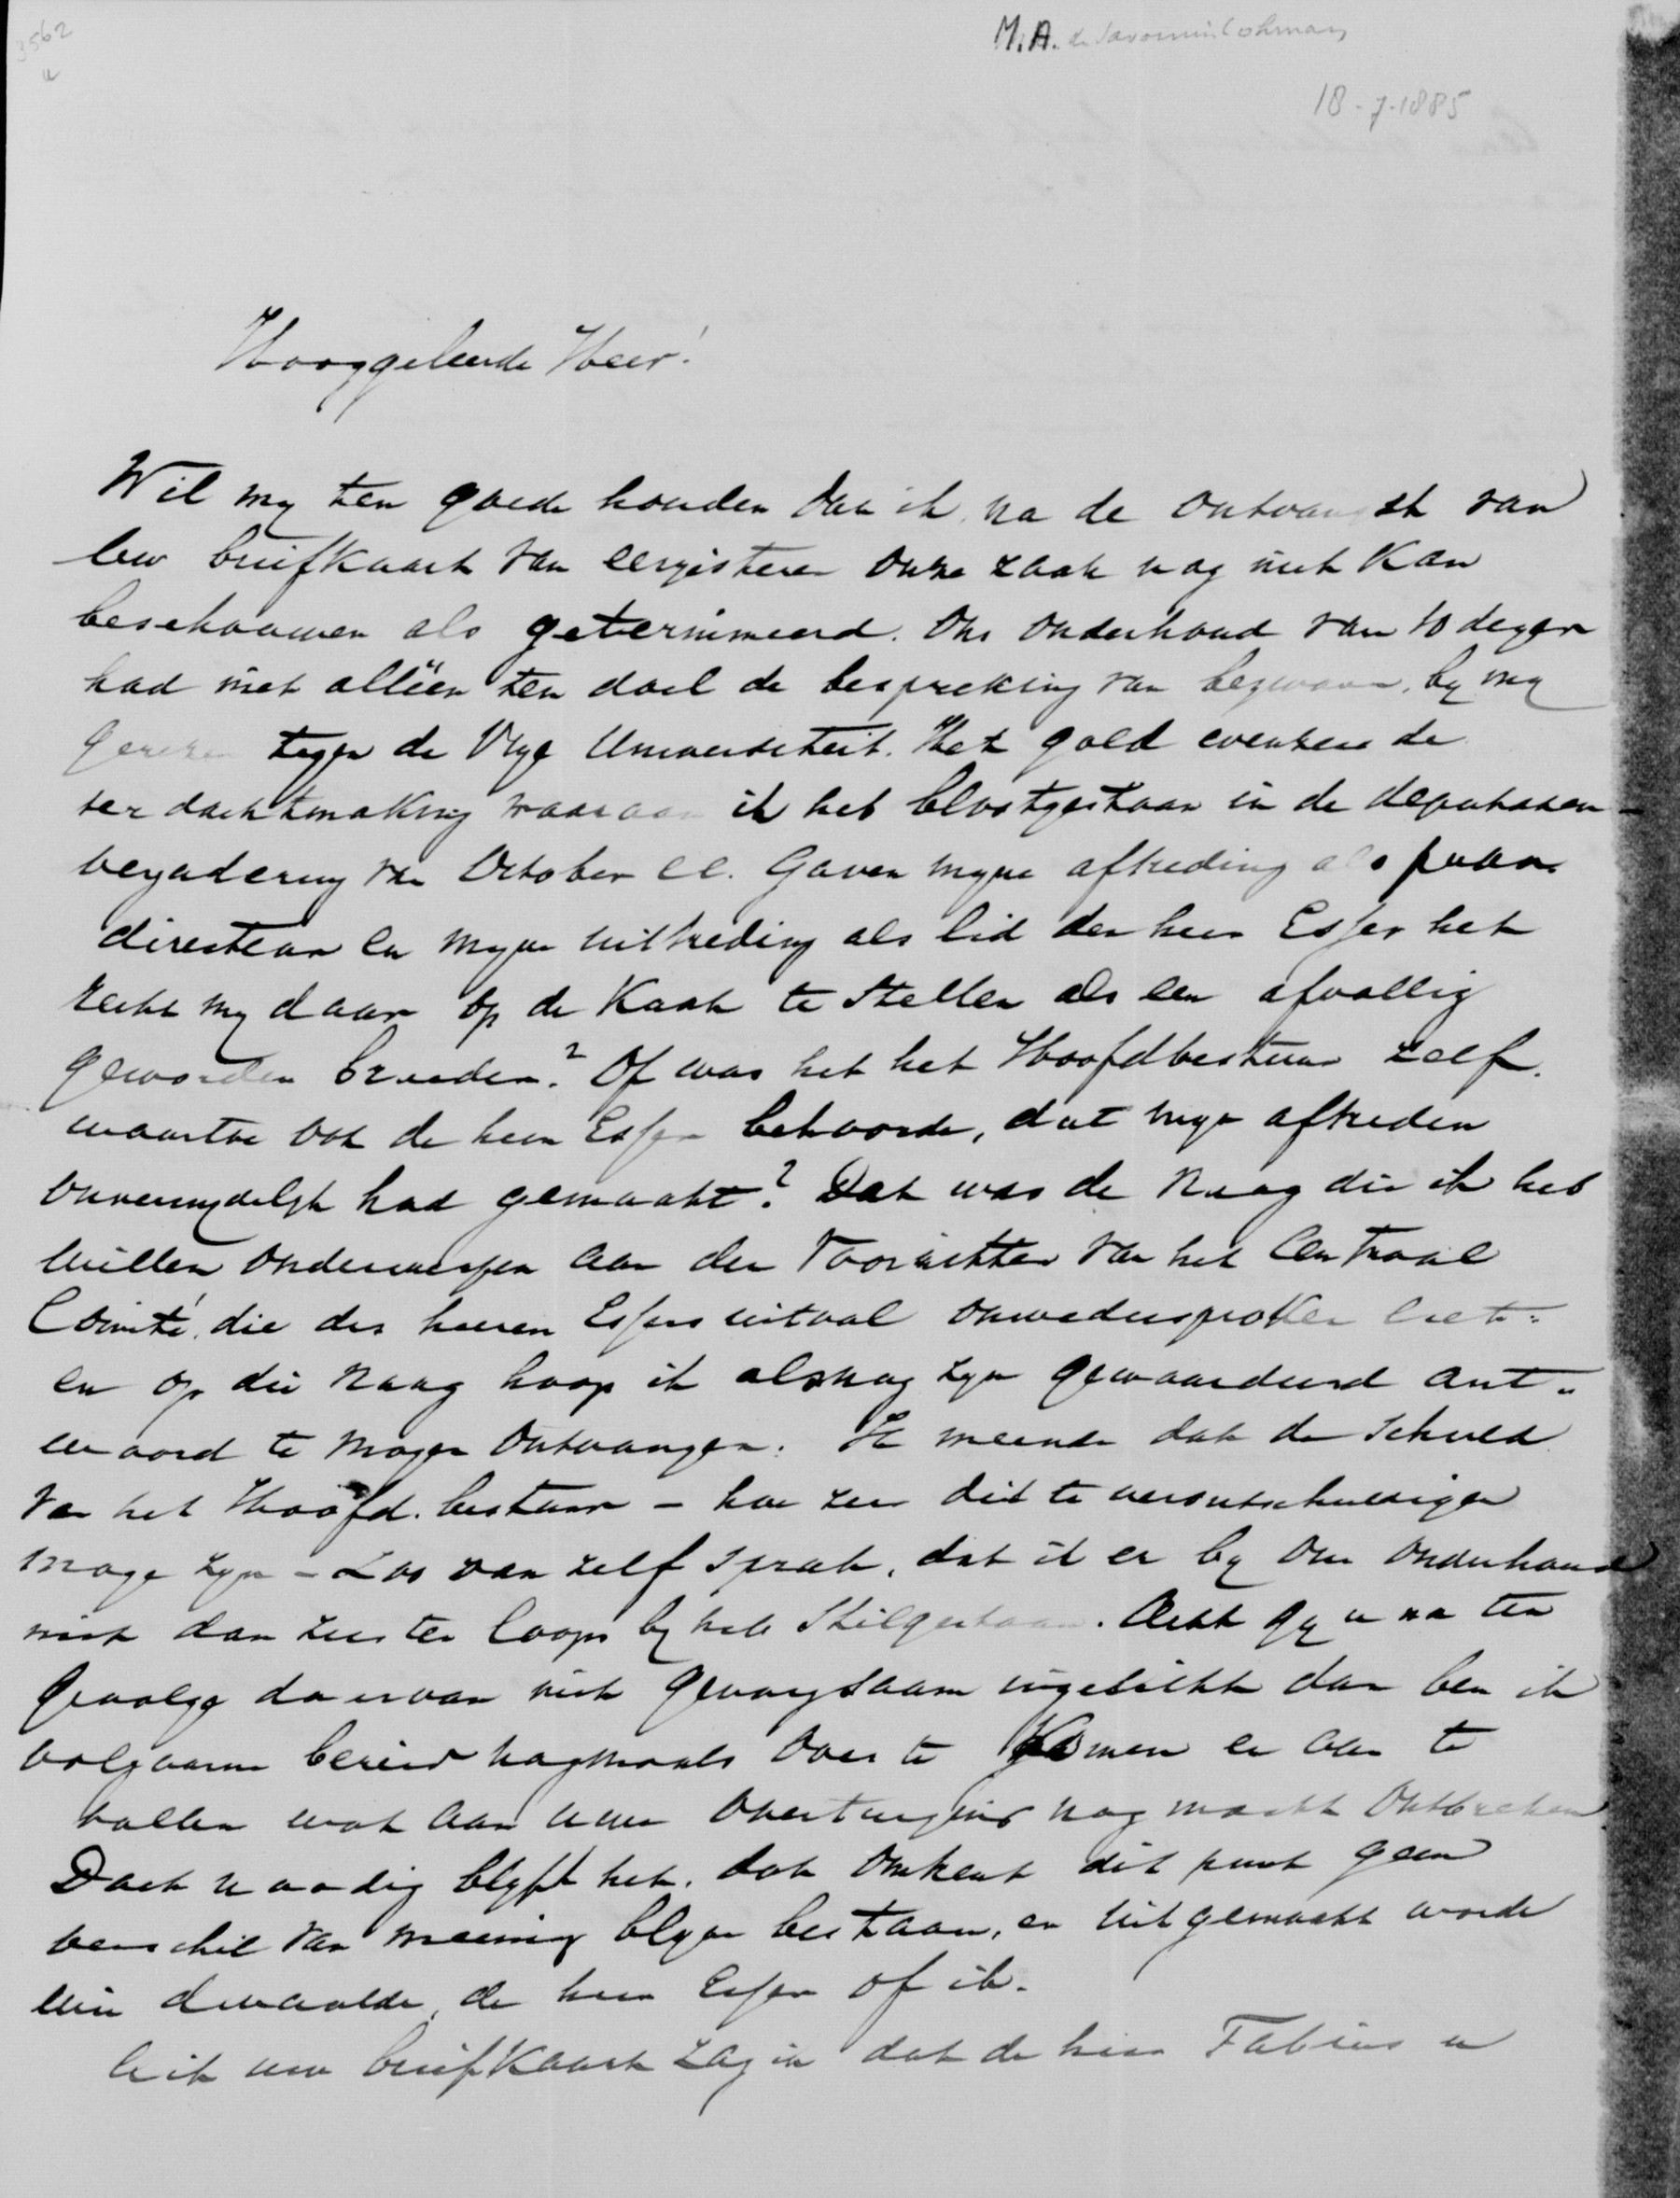 3562
M.A. de Savornin Lohman
18-7-1885
Hooggeleerde Heer!
Wil my ten goede houden dat ik na de ontvangst van
uw briefkaart van eergisteren onze zaak nog niet kan
beschouwen als getermineerd. Ons onderhoud van 10 dezer
had niet alléén ten doel de bespreking van bezwaren, by my
gerezen tegen de Vrye Universiteit. Het gold evenzeer de
verdachtmaking waaraan ik heb blootgestaan in de deputaten-
vergadering van October ll. Gaven myne aftreding als
directeur en myne uittreding als lid den heer Esser het
recht my daar op de kaak te stellen als een afvallig
geworden broeder? Of was het het Hoofdbestuur zelf,
waartoe ook de heer Esser behoorde, dat myn aftreden
onvermydelyk had gemaakt? Dat was de vraag die ik heb
willen onderwerpen aan den Voorzitter van het Centraal
Comité, die des heeren Essers uitval onwedersproken liet:
en op die vraag hoop ik alsnog zyn gewaardeerd ant-
woord te mogen ontvangen. Ik meende dat de schuld
van het Hoofd.bestuur - hoe zeer dit te verontschuldigen
moge zyn - zoo van zelf sprak, dat ik er by ons onderhoud
niet dan zeer ter loops by heb stilgestaan. Acht gy u nu ten
gevolge daarvan niet genoegzaam ingelicht dan ben ik
volgaarne bereid nogmaals over te komen en aan te
vullen wat aan uwe overtuiging nog mocht ontbreken.
Doch noodig blyft het, dat omtrent dit punt geen
verschil van meening blyve bestaan, en uitgemaakt worde
wie dwaalde, de heer Esser of ik.
Uit uw briefkaart zag ik dat de heer Fabius u